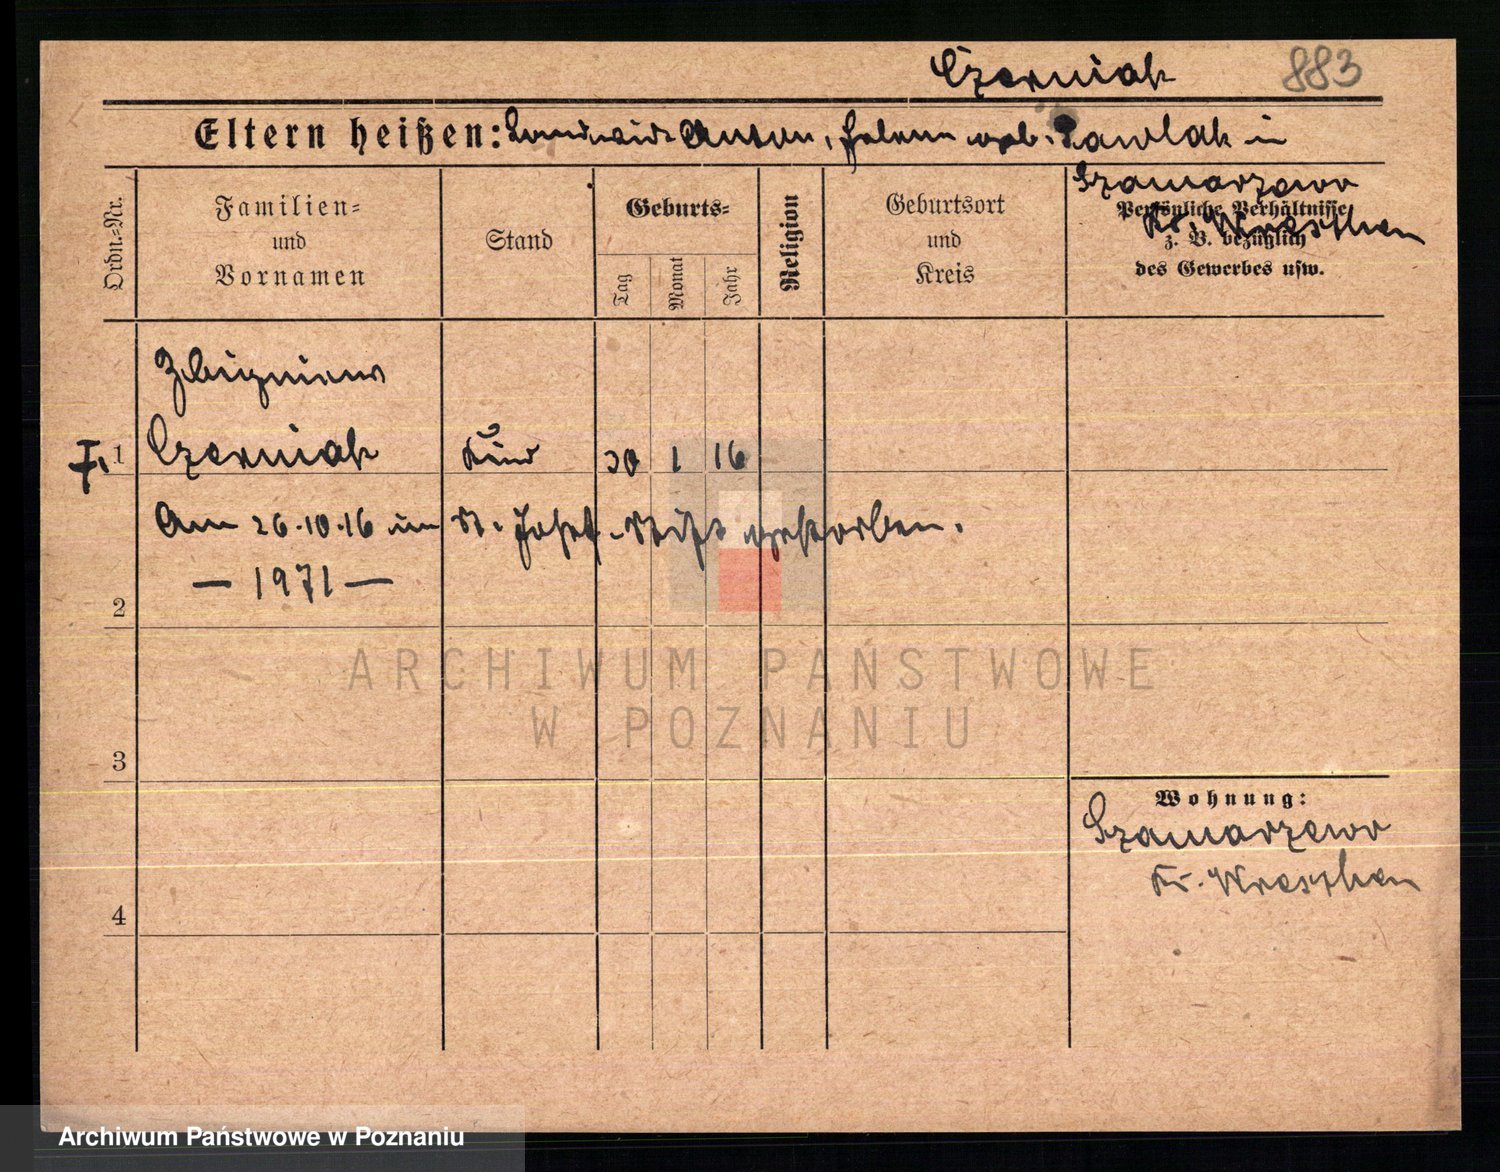 Czerniak 883
Eltern heißen: Landwirt Anton, Helene geb. Pawlak in
Szamarzewo
Kr. Wreschen
Ordn.=Nr.
Familien=
und
Vornamen
Stand
Geburts=
Tag
Monat
Jahr
Religion
Geburtsort
und
Kreis
Persönliche Verhältnisse
z. B. bezüglich
des Gewerbes usw.
Zbigniew
1 Czerniak Kind 30 1 16
Am 26.10.16 im St. Josef-Stift gestorben.
— 1971 —
2
3
4
Wohnung:
Szamarzewo
Kr. Wreschen
ARCHIWUM PAŃSTWOWE
W POZNANIU
Archiwum Państwowe w Poznaniu